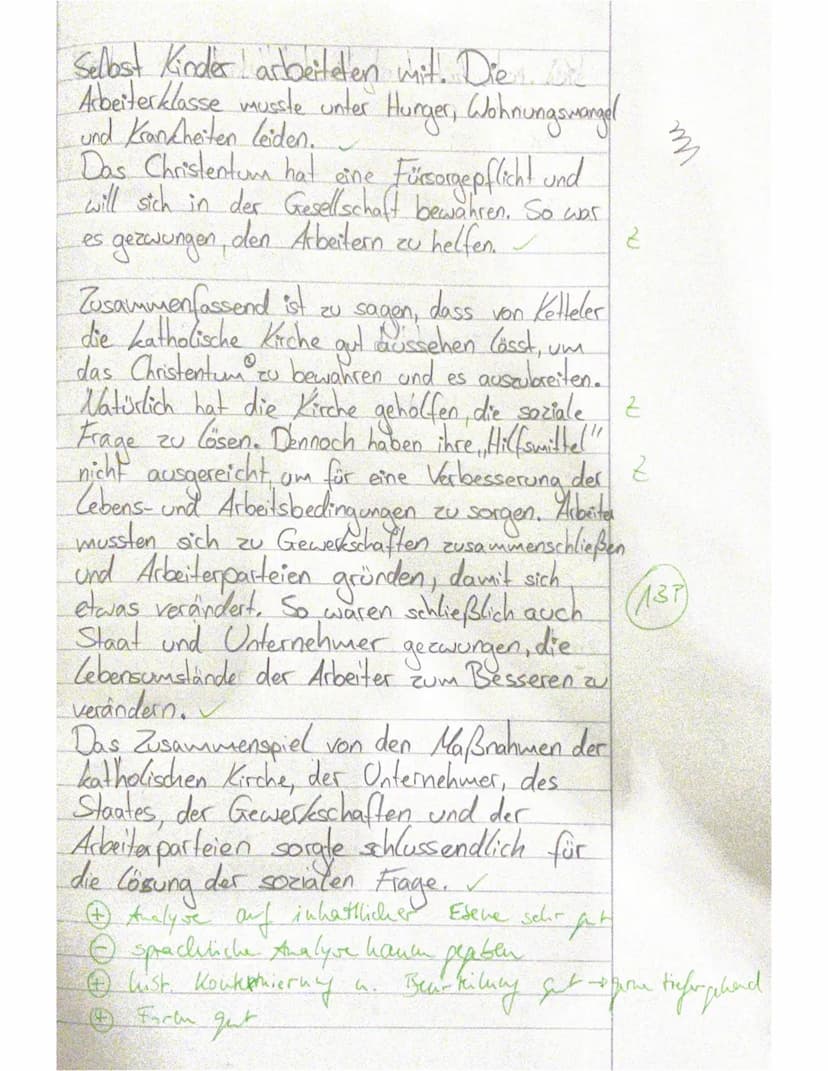 Selbst Kinder arbeiteten mit. Die
Arbeiterklasse musste unter Hunger, Wohnungsmangel
und Krankheiten leiden. ✓
Das Christentum hat eine Fürsorgepflicht und
will sich in der Gesellschaft bewahren. So war
es gezwungen, den Arbeitern zu helfen. ✓ Z
Zusammenfassend ist zu sagen, dass von Ketteler
die katholische Kirche gut aussehen lässt, um
das Christentum zu bewahren und es auszubreiten.
Natürlich hat die Kirche geholfen, die soziale Z
Frage zu lösen. Dennoch haben ihre „Hilfsmittel"
nicht ausgereicht, um für eine Verbesserung der Z
Lebens- und Arbeitsbedingungen zu sorgen. Arbeiter
mussten sich zu Gewerkschaften zusammenschließen
und Arbeiterparteien gründen, damit sich
etwas verändert. So waren schließlich auch 13P
Staat und Unternehmer gezwungen, die
Lebensumstände der Arbeiter zum Besseren zu
verändern. ✓
Das Zusammenspiel von den Maßnahmen der
katholischen Kirche, der Unternehmer, des
Staates, der Gewerkschaften und der
Arbeiterparteien sorgte schlussendlich für
die Lösung der sozialen Frage. ✓
⊕ Analyse auf inhaltlicher Ebene sehr gut
⊖ sprachliche Analyse kaum gegeben
⊕ hist. u. Beurteilung gut → gerne tiefergehend
⊕ Form gut